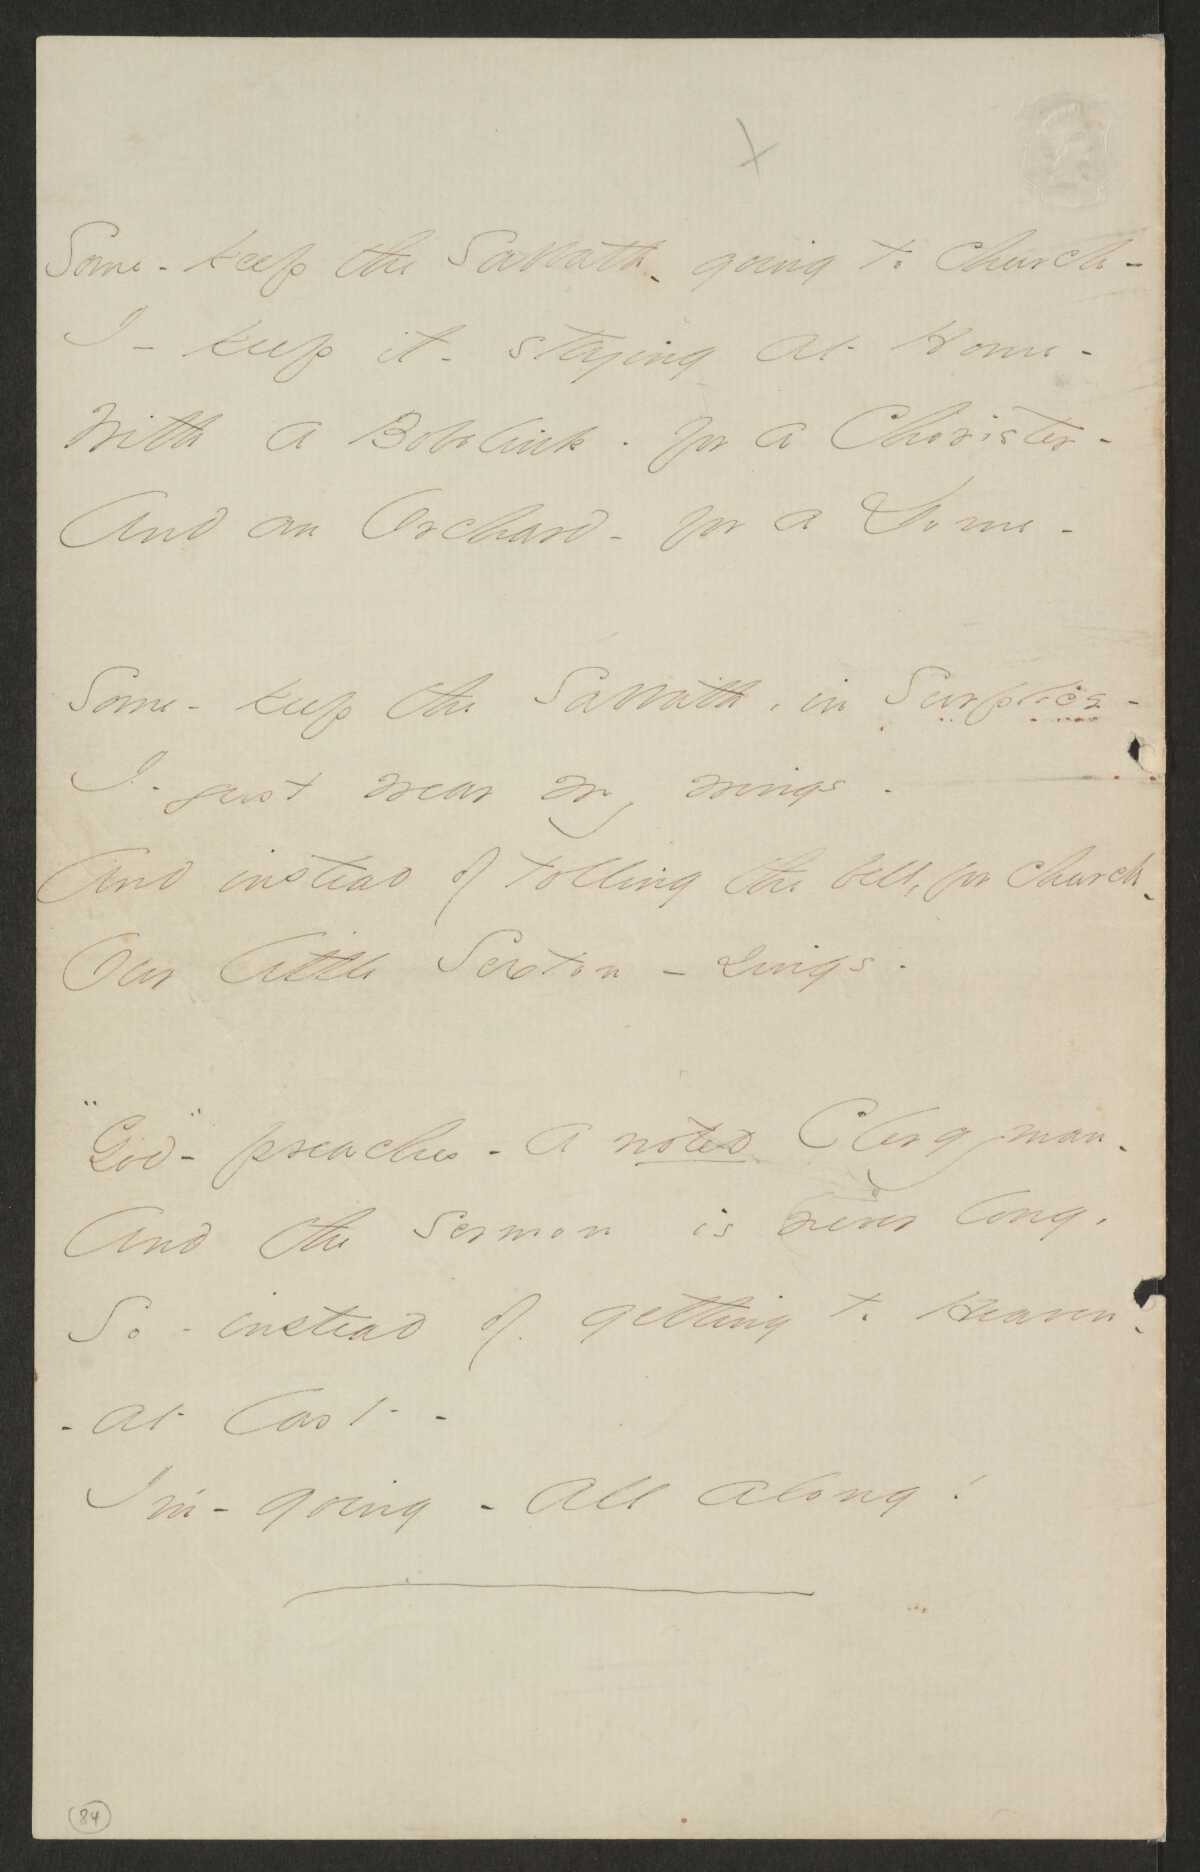 x
Some - keep the Sabbath - going to church -
I - keep it - staying at Home -
With a Bobolink - for a Chorister -
And an Orchard - for a Dome -
Some - keep the Sabbath, in Surplice -
I - just wear my wings -
And instead of tolling the bell, for church -
Our little Sexton - sings -
"God" - preaches - a noted Clergyman -
And the sermon is never long,
So - instead of getting to Heaven -
- at last -
I'm - going - all along!
84